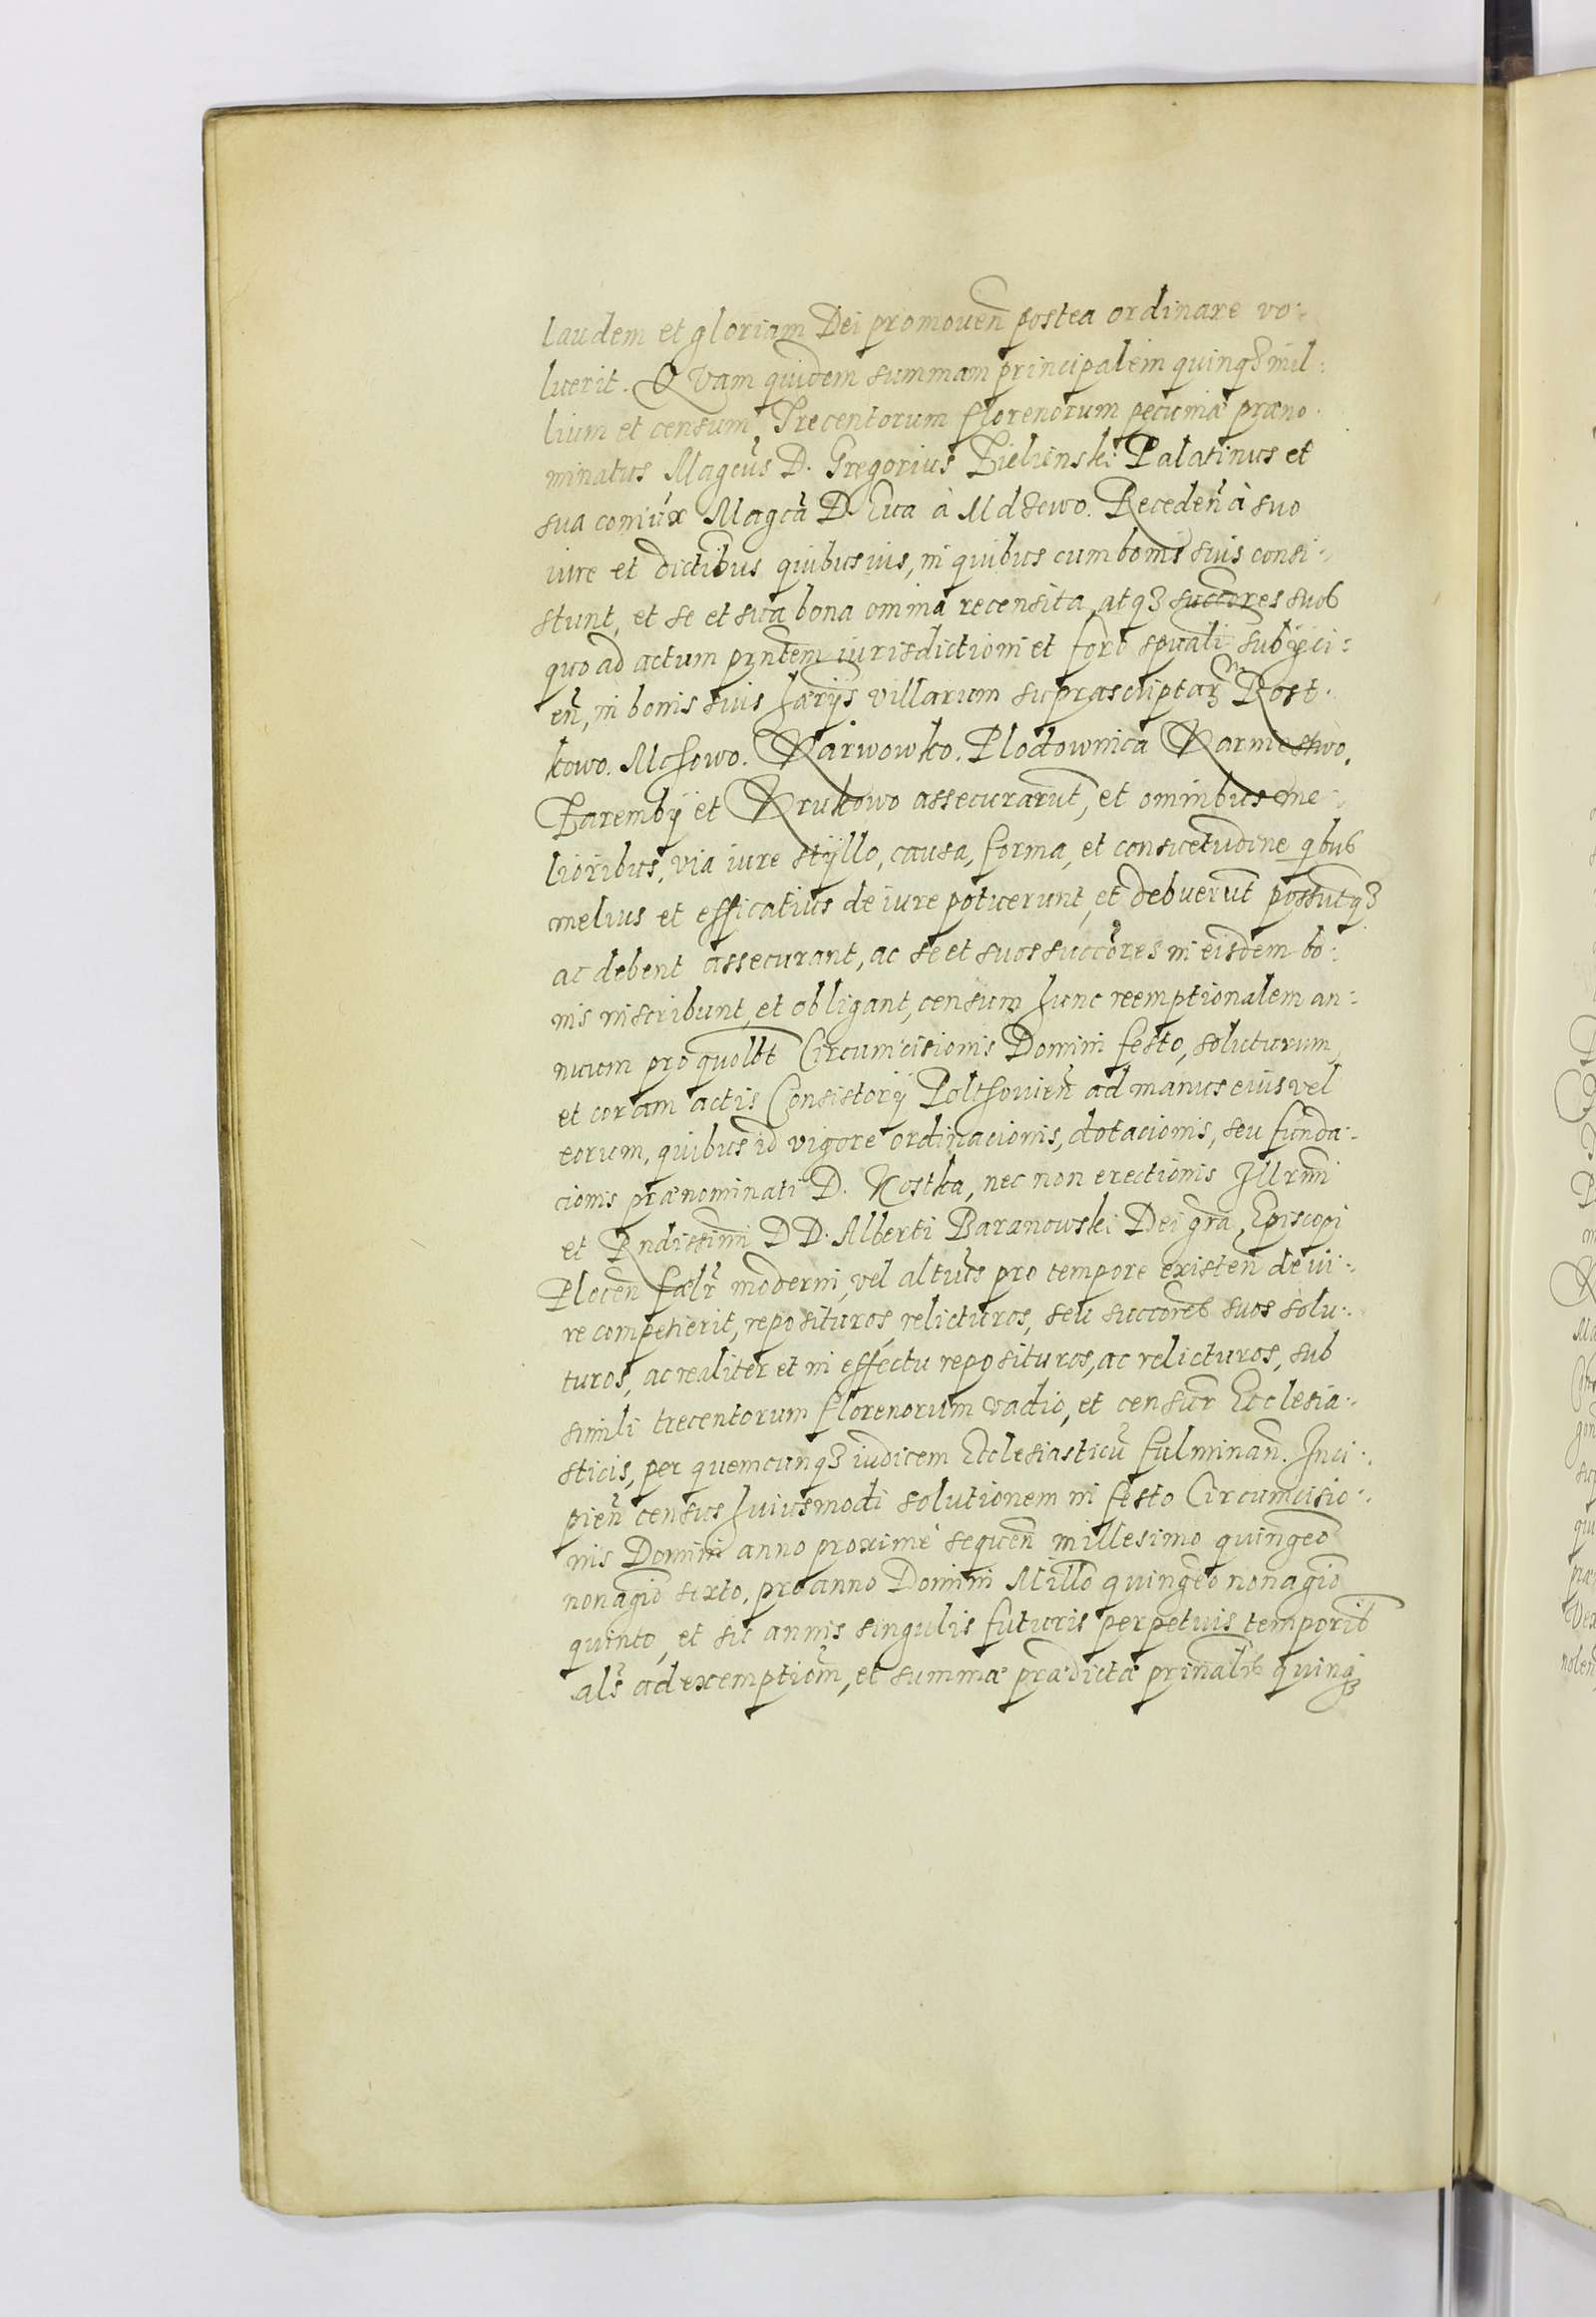 laudem et gloriam Dei promoueñ postea ordinare vo:
luerit. QVam quidem summam principalem quinqȝ mil:
lium et censum Trecentorum florenorum pecuniæ præno:
minatus Magcus D. Gregorius Zielinski Palatinus et
sua coniux Magca D. Eua à Mdsewo. Recedeñ à suo
iure et dictibus quibusuis, in quibus cum bonis suis consi:
stunt, et se et sua bona omnia recensita, atqȝ succores suos
quo ad actum pñtem iurisdictioni et foro spuali subÿci:
eñ, in bonis suis hærÿs villarum suprascriptarȝ Rost:
kowo. Mchowo. Karwowko. Plodownica Karniewo,
Zarembÿ et Krukowo assecurarūt, et omnibus me:
lioribus, via iure stÿllo, causa, forma, et consuetudine qbus
melius et efficatius de iure potuerunt, et debuerūt possūtqȝ
ac debent assecurant, ac se et suos succores in eisdem bo:
nis inscribunt, et obligant, censum hunc reemptionalem an:
nuum pro quolbt Circumcisionis Domini festo, soluturum,
et coram actis Consistorÿ Polthouieñ ad manus eius vel
eorum, quibus id vigore ordinacionis, dotacionis, seu funda:
cionis prænominati D. Kostka, nec non erectionis Illrmi
et Rndissimi D D. Alberti Baranowski Dei gra, Episcopi
Plocen fælr moderni, vel altius pro tempore existeñ de iu:
re competierit, reposituros, relicturos, seu succores suos solu:
turos, ac realiter et in effectu reposituros, ac relicturos, sub
simili trecentorum florenorum vadio, et censur Ecclesia:
sticis, per quemcunqȝ iudicem Ecclesiasticū fulminañ. Inci:
pieñ census huiusmodi solutionem in festo Circumcisio:
nis Domini anno proximè sequeñ millesimo quingeo
nonagio sexto, pro anno Domini Millo quingeo nonagio
quinto, et sic annis singulis futuris perpetuis temporib
als ad exemptiom, et summæ prædictæ prinalis quinqȝ